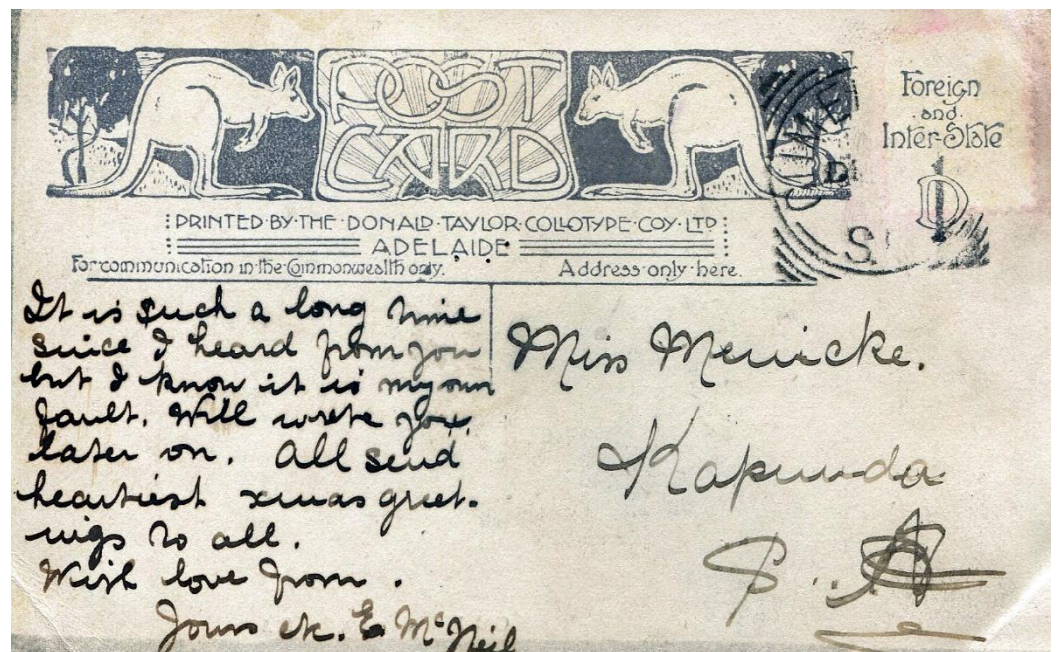 POST
CARD
Foreign
and
Inter-State
1D
PRINTED·BY·THE·DONALD·TAYLOR·COLLOTYPE·COY·LTD
ADELAIDE
For communication in the Commonwealth only.
Address only here.
It is such a long time
since I heard from you
but I know it is my own
fault. Will write you
later on. All send
heartiest xmas greet-
ings to all.
With love from.
Yours etc. E. McNeil
Miss Menicke.
Kapunda
S. A